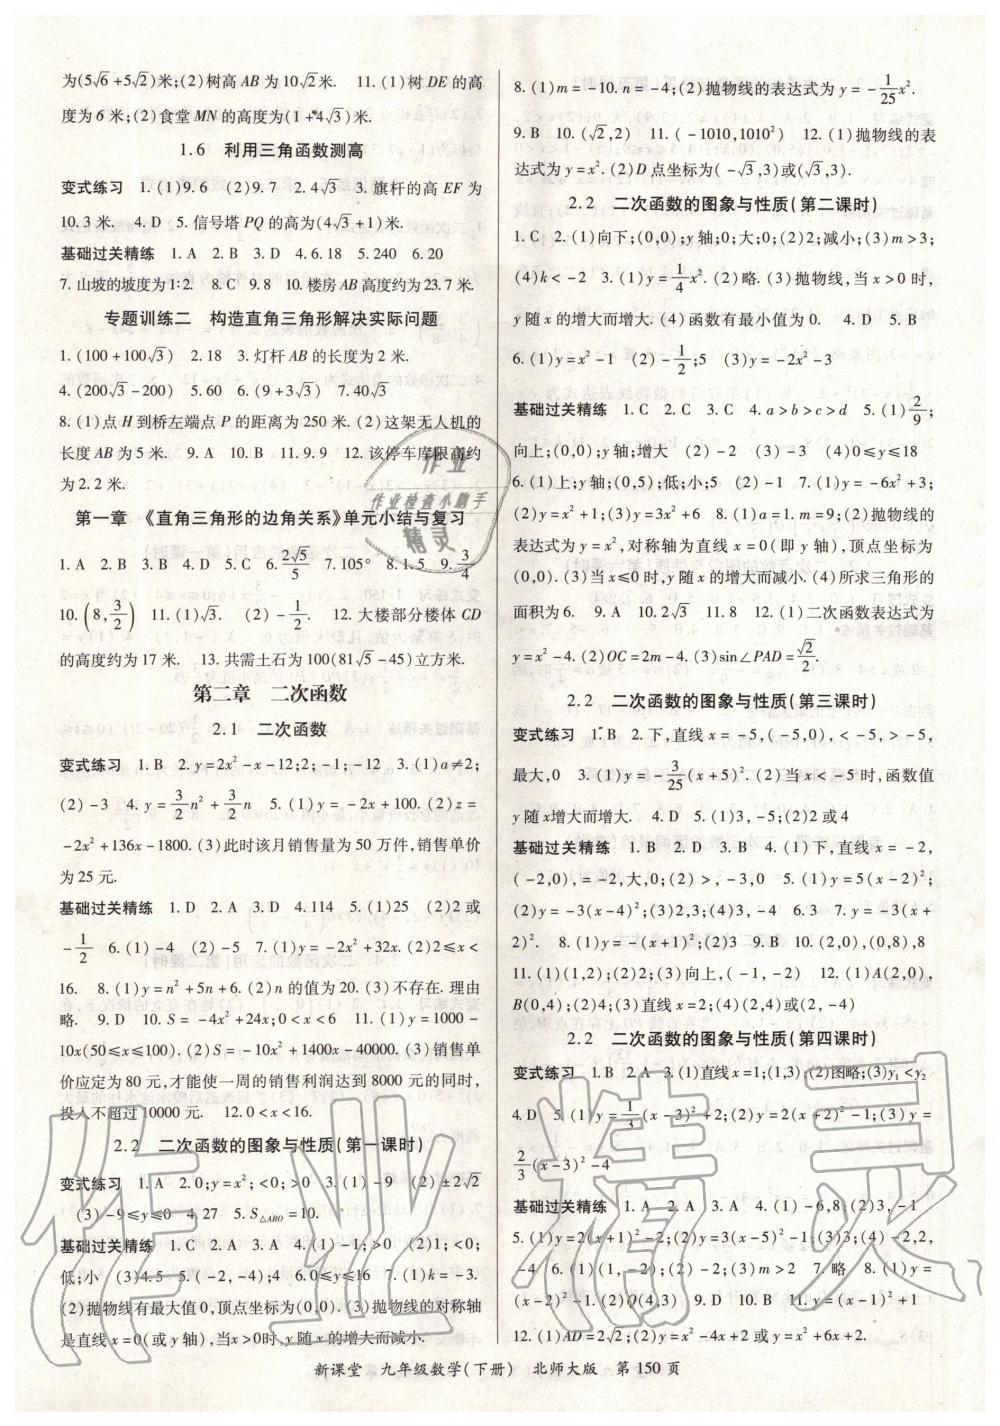 为(5√6+5√2)米;(2)树高AB为10√2米. 11.(1)树DE的高
度为6米;(2)食堂MN的高度为(1+4√3)米.
1.6 利用三角函数测高
变式练习 1.(1)9.6 (2)9.7 2.4√3 3.旗杆的高EF为
10.3米. 4.D 5.信号塔PQ的高为(4√3+1)米.
基础过关精练 1.A 2.B 3.D 4.6.18 5.240 6.20
7.山坡的坡度为1∶2. 8.C 9.8 10.楼房AB高度约为23.7米.
专题训练二 构造直角三角形解决实际问题
1.(100+100√3) 2.18 3.灯杆AB的长度为2米.
4.(200√3-200) 5.60 6.(9+3√3) 7.40√3
8.(1)点H到桥左端点P的距离为250米.(2)这架无人机的
长度AB为5米. 9.A 10.B 11.9.9 12.该停车库限高约
为2.2米.
第一章 《直角三角形的边角关系》单元小结与复习
1.A 2.B 3.B 4.D 5.C 6.2√5/5 7.105° 8.1.5 9.3/4
10.(8,3/2) 11.(1)√3. (2)-1/2. 12.大楼部分楼体CD
的高度约为17米. 13.共需土石为100(81√5-45)立方米.
第二章 二次函数
2.1 二次函数
变式练习 1.B 2.y=2x²-x-12;2;-1;-12 3.(1)a≠2;
(2)-3 4.y=3/2n²+3/2n 5.(1)y=-2x+100.(2)z=
-2x²+136x-1800.(3)此时该月销售量为50万件,销售单价
为25元.
基础过关精练 1.D 2.A 3.D 4.114 5.(1)25 (2)2或
-1/2 6.(1)-4 (2)-5 7.(1)y=-2x²+32x.(2)2≤x<
16. 8.(1)y=n²+5n+6.(2)n的值为20.(3)不存在.理由
略. 9.D 10.S=-4x²+24x;0<x<6 11.(1)y=1000-
10x(50≤x≤100).(2)S=-10x²+1400x-40000.(3)销售单
价应定为80元,才能使一周的销售利润达到8000元的同时,
投入不超过10000元. 12.0<x<16.
2.2 二次函数的图象与性质(第一课时)
变式练习 1.A 2.0;y=x²;<0;>0 3.(1)-9 (2)±2√2
(3)-9≤y≤0 4.27 5.S△ABO=10.
基础过关精练 1.C 2.A 3.A 4.(1)-1;>0 (2)1;<0;
低;小 (3)4.5 5.(-2,-4);4 6.0≤y≤16 7.(1)k=-3.
(2)抛物线有最大值0,顶点坐标为(0,0).(3)抛物线的对称轴
是直线x=0(或y轴),当x>0时,y随x的增大而减小.
8.(1)m=-10.n=-4;(2)抛物线的表达式为y=-1/25x².
9.B 10.(√2,2) 11.(-1010,1010²) 12.(1)抛物线的表
达式为y=x².(2)D点坐标为(-√3,3)或(√3,3).
2.2 二次函数的图象与性质(第二课时)
1.C 2.(1)向下;(0,0);y轴;0;大;0;(2)2;减小;(3)m>3;
(4)k<-2 3.(1)y=1/4x².(2)略.(3)抛物线,当x>0时,
y随x的增大而增大.(4)函数有最小值为0. 4.D 5.B
6.(1)y=x²-1 (2)-1/2;5 (3)y=-2x²-3
基础过关精练 1.C 2.C 3.C 4.a>b>c>d 5.(1)2/9;
向上;(0,0);y轴;增大 (2)-2 (3)2 (4)0≤y≤18
6.(1)上;y轴;(0,5);低;小;5 (2)-1 7.(1)y=6x²+3;
(2)y=6x²+1;(3)y=3x²+6 8.(1)a=1.m=9;(2)抛物线的
表达式为y=x²,对称轴为直线x=0(即y轴),顶点坐标为
(0,0).(3)当x≤0时,y随x的增大而减小.(4)所求三角形的
面积为6. 9.A 10.2√3 11.8 12.(1)二次函数表达式为
y=x²-4.(2)OC=2m-4.(3)sin∠PAD=√2/2.
2.2 二次函数的图象与性质(第三课时)
变式练习 1.B 2.下,直线x=-5,(-5,0),<-5,>-5,
最大,0 3.(1)y=-3/25(x+5)².(2)当x<-5时,函数值
y随x增大而增大. 4.D 5.(1)3,-5;(2)2或4
基础过关精练 1.B 2.D 3.B 4.(1)下,直线x=-2,
(-2,0),=-2,大,0;(2)>,-3,0 5.(1)y=5(x-2)²;
(2)y=-3(x-4)²;(3)2,3;(4)3,-4 6.3 7.y=-3(x+
2)². 8.(1)y=-(x+1)²;(2)3 9.B 10.(2,0),(0,8),8
11.(1)(1,2);(2)2;(3)向上,(-1,-2) 12.(1)A(2,0),
B(0,4);(2)4;(3)直线x=2;(4)(2,4)或(2,-4)
2.2 二次函数的图象与性质(第四课时)
变式练习 1.B 2.A 3.(1)直线x=1;(1,3);(2)图略;(3)y₁<y₂
4.D 5.(1)y=1/3(x-3)²+2;(2)y=2(x+2)²-1;(3)y=
2/3(x-3)²-4
基础过关精练 1.A 2.A 3.A 4.(1)-6,8;(2)3,-1
5.(1)y=2(x+1)²-2;(2)y=3(x-5)²-1;(3)3;(4)-2,2,
-4 6.(1)(1,-2);(2)-2;(3)-2 7.略 8.(1)y=
(x-2)²-1.(2)Q(4,3) 9.D 10.B 11.y=-(x-1)²+1
12.(1)AD=2√2;(2)y=x²-4x+2或y=x²+6x+2.
新课堂 九年级数学(下册) 北师大版 第150页
作业
作业检查小助手
精灵
作业精灵